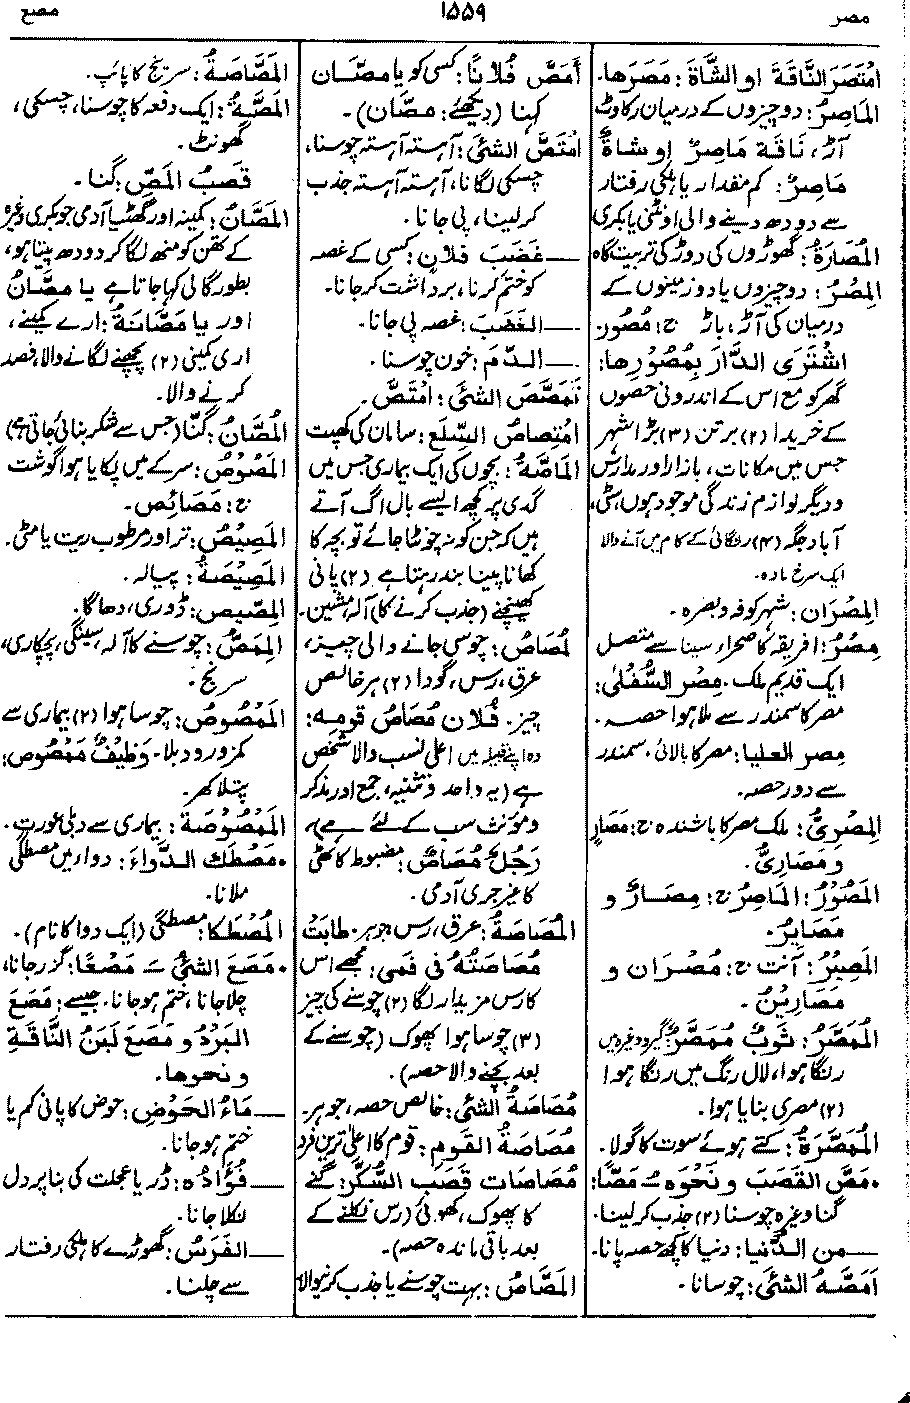 مصر
۱۵۵۹
مصع
اِمْتَصَرَ النَّاقَةَ او الشَّاةَ: مَصَرَها۔
المَاصِرُ: دو چیزوں کے درمیان رکاوٹ
آڑ، نَاقَة مَاصِرٌ او شاةٌ
مَاصِرٌ: کم مقدار یا ہلکی رفتار
سے دودھ دینے والی اونٹنی یا بکری
المُصَارَةُ: گھوڑوں کی دوڑ کی تربیت گاہ
المِصْرُ: دو چیزوں یا دو زمینوں کے
درمیان کی آڑ، باڑ ج: مُصُور۔
اشْتَرَى الدَّارَ بِمُصُوْرِها:
گھر کو مع اس کے اندرونی حصوں
کے خریدا (۲) برتن (۳) بڑا شہر
جس میں مکانات، بازار اور مدارس
ودیگر لوازم زندگی موجود ہوں، بستی،
آباد جگہ (۴) رنگائی کے کام میں آنے والا
ایک سرخ مادہ۔
المِصْرَان: شہر کوفہ و بصرہ۔
مِصْرُ: افریقہ کا صحراء سینا سے متصل
ایک قدیم ملک۔ مِصْر السُّفْلَى:
مصر کا سمندر سے ملا ہوا حصہ۔
مِصر العليا: مصر کا بالائی، سمندر
سے دور حصہ۔
المِصْرِيُّ: ملک مصر کا باشندہ ج: مَصَارٍ
و مَصَارِيُّ۔
المَصُوْرُ: المَاصِرُ ج: مِصَارٌ و
مَصَائِرُ۔
المَصِيْرُ: آنت ج: مُصْرَان و
مَصَارِيْنُ۔
المُمَصَّرُ: ثَوبٌ مُمَصَّرٌ: گیرو وغیرہ میں
رنگا ہوا، لال رنگ میں رنگا ہوا
(۲) مصری بنایا ہوا۔
المُمَصَّرَةُ: کتے ہوئے سوت کا گولا۔
• مَصَّ القَصَبَ و نَحْوَه ـُ مَصًّا:
گنا وغیرہ چوسنا (۲) جذب کر لینا۔
— من الدُّنيا: دنیا کا کچھ حصہ پانا۔
اَمَصَّهُ الشئَ: چوسانا۔
اَمَصَّ فُلانًا: کسی کو یا مصّان
کہنا (دیکھئے: مصّان)۔
امْتَصَّ الشئَ: آہستہ آہستہ چوسنا،
چسکی لگانا، آہستہ آہستہ جذب
کر لینا، پی جانا۔
— غضبَ فلانٍ: کسی کے غصہ
کو ختم کرنا، برداشت کر جانا۔
— الغضبَ: غصہ پی جانا۔
— الدَّمَ: خون چوسنا۔
تَمَصَّصَ الشئَ: امْتَصَّ۔
امْتِصاصُ السِّلَع: سامان کی کھپت
المَاصَّةُ: بچوں کی ایک بیماری جس میں
گدی پر کچھ ایسے بال اگ آتے
ہیں کہ جن کو نہ چونٹا جائے تو بچہ کا
کھانا پینا بند رہتا ہے (۲) پانی
کھینچنے (جذب کرنے کا) آلہ، مشین۔
المُصَاصُ: چوسی جانے والی چیز،
عرق، رس، گودا (۲) ہر خالص
چیز۔ فُلان مُصَاصُ قومِهِ:
وہ اپنے قبیلہ میں اعلی نسب والا شخص
ہے (یہ واحد و تثنیہ، جمع اور مذکر
و مؤنث سب کے لئے ہے)،
رَجُلٌ مُصَاصٌ: مضبوط کاٹھی
کا غیر جری آدمی۔
المُصَاصَةُ: عرق، رس، جوہر۔ طابَتْ
مُصَاصَتُهُ فى فَمى: مجھے اس
کا رس مزیدار لگا (۲) چوسنے کی چیز
(۳) چوسا ہوا پھوک (چوسنے کے
بعد بچنے والا حصہ)۔
مُصَاصَةُ الشئِ: خالص حصہ، جوہر۔
مُصَاصَةُ القَومِ: قوم کا اعلیٰ ترین فرد
مُصَاصَات قَصَبِ السُّكَّرِ: گنے
کا پھوک، کھوئی (رس نکلنے کے
بعد باقی ماندہ حصہ)۔
المَصَّاصُ: بہت چوسنے یا جذب کرنیوالا
المَصَّاصَةُ: سرنج کا پائپ۔
المَصَّةُ: ایک دفعہ کا چوسنا، چسکی،
گھونٹ۔
قَصَبُ المَصِّ: گنا۔
المَصَّانُ: کمینہ اور گھٹیا آدمی جو بکری وغیرہ
کے تھن کو منھ لگا کر دودھ پیتا ہو،
بطور گالی کہا جاتا ہے يا مصَّانُ
اور يا مَصَّانَةُ: ارے کمینے،
اری کمینی (۲) پچھنے لگانے والا، فصد
کرنے والا۔
المُصَّانُ: گنّا (جس سے شکر بنائی جاتی ہے)
المَصُوْصُ: سرکے میں پکایا ہوا گوشت
ج: مَصَائِص۔
المَصِيْصُ: تر اور مرطوب ریت یا مٹی۔
المَصِيْصَةُ: پیالہ۔
المِصِّيص: ڈوری، دھاگا۔
المِمَصُّ: چوسنے کا آلہ، سینگی، پچکاری،
سرنج۔
المَمْصُوصُ: چوسا ہوا (۲) بیماری سے
کمزور و دبلا۔ وَظِيْفٌ مَمْصُوص:
پتلا کھر۔
المَمْصُوصَة: بیماری سے دبلی عورت۔
• مَصْطَكَ الدَّواءَ: دواء میں مصطگی
ملانا۔
المُصْطَكا: مصطگی (ایک دوا کا نام)۔
• مَصَعَ الشئُ ـَ مَصْعًا: گزر جانا،
چلا جانا، ختم ہو جانا۔ جیسے: مَصَعَ
البَرْدُ و مَصَعَ لَبَنُ النَّاقَةِ
و نَحوها۔
— مَاءُ الحَوْضِ: حوض کا پانی کم یا
ختم ہو جانا۔
— فُؤَادُه: ڈر یا عجلت کی بنا پر دل
نکلا جانا۔
— الفَرَسُ: گھوڑے کا ہلکی رفتار
سے چلنا۔